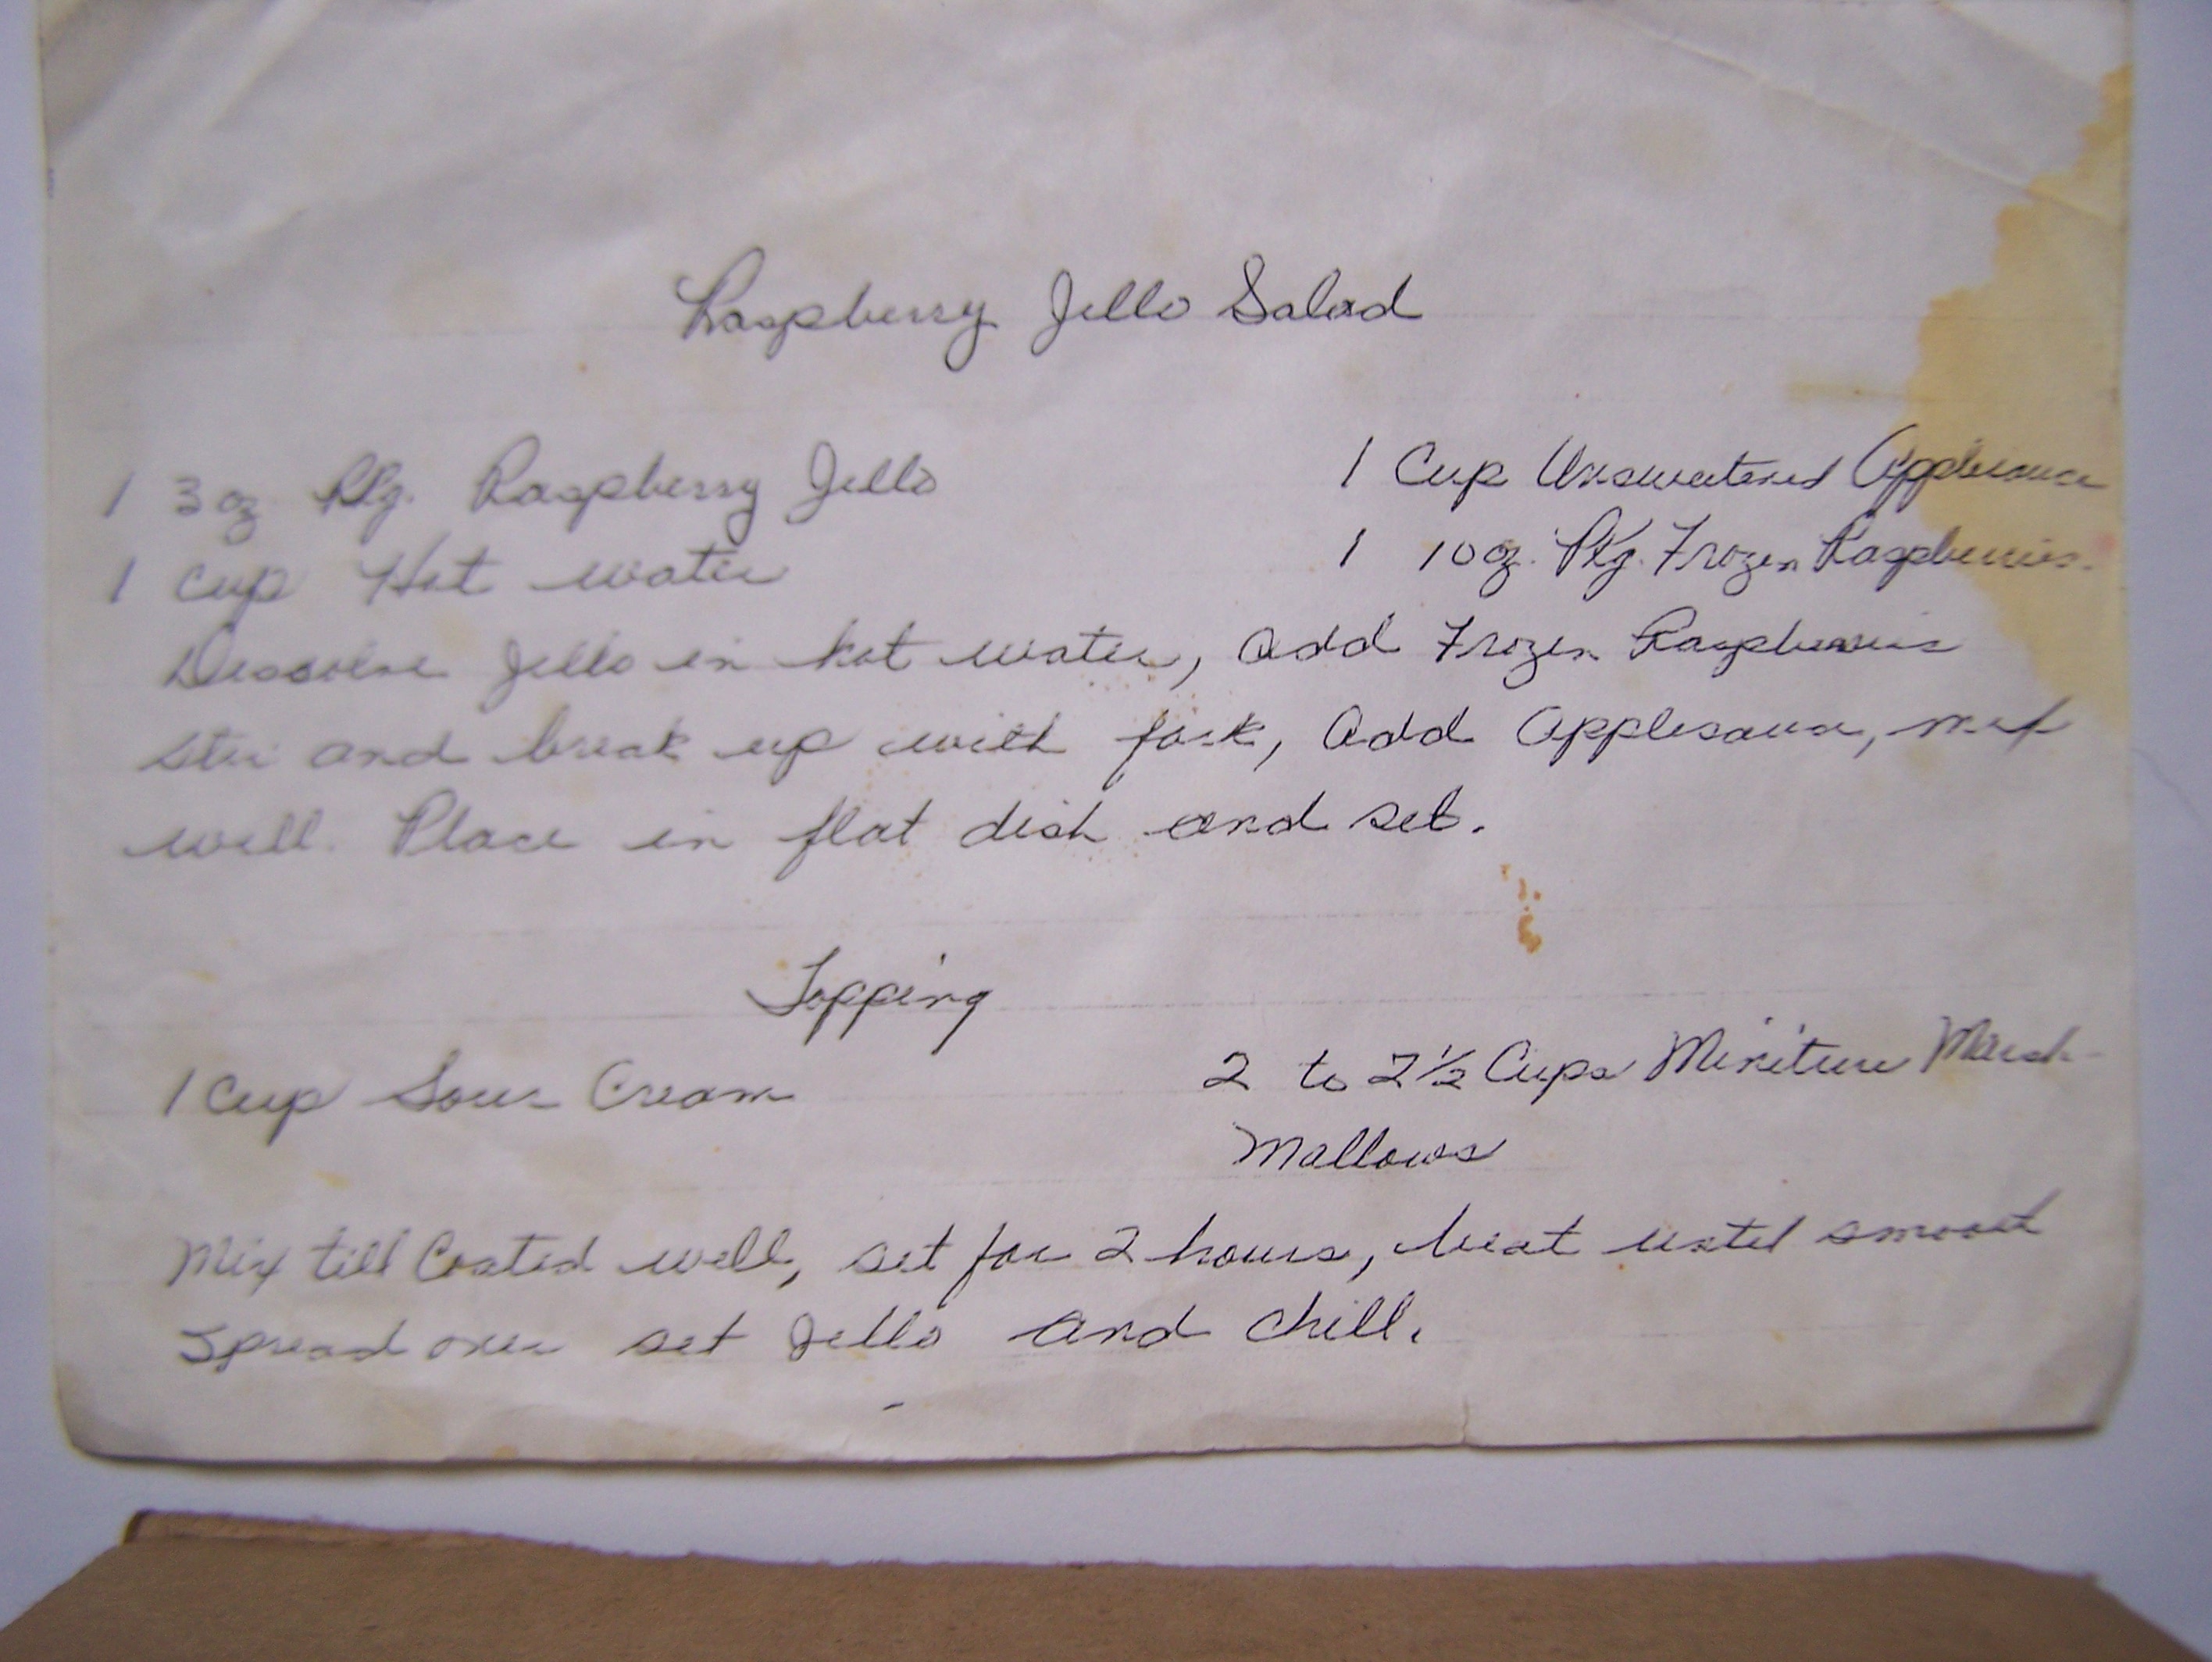 Raspberry Jello Salad
1 3 oz Pkg. Raspberry Jello 1 Cup Unsweetened Applesauce
1 cup Hot water 1 10 oz. Pkg. Frozen Raspberries.
Dissolve Jello in hot water, add Frozen Raspberries
stir and break up with fork, Add Applesauce, mix
well. Place in flat dish and set.
Topping
1 cup Sour Cream 2 to 2½ Cups Miniture Marsh-
Mallows
Mix till Coated well, set for 2 hours, beat until smooth
Spread over set Jello and chill.